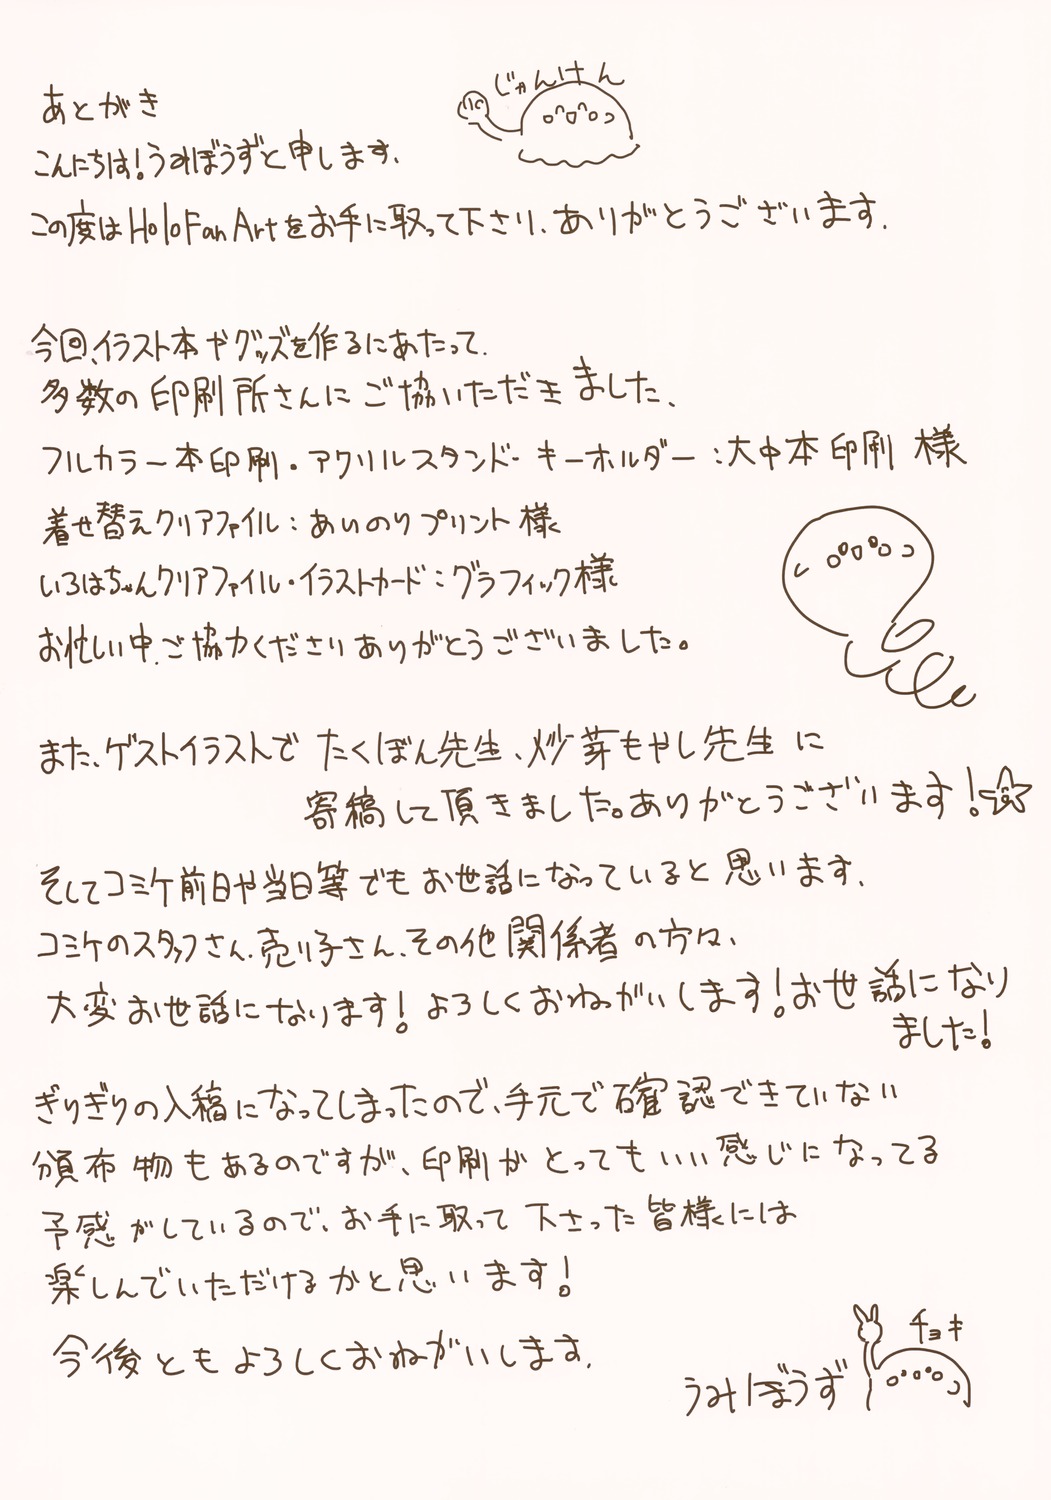 じゃんけん
あとがき
こんにちは!うみぼうずと申します、
この度はHoloFanArtをお手に取って下さり、ありがとうございます.
今回、イラスト本やグッズを作るにあたって、
多数の印刷所さんにご協いただきました、
フルカラー本印刷・アクリルスタンド キーホルダー:大中本印刷 様
着せ替えクリアファイル:あいのりプリント 様
いろはちゃんクリアファイル・イラストカード:グラフィック様
お忙しい中、ご協力くださりありがとうございました。
また、ゲストイラストで たくぼん先生、炒芽もやし先生 に
寄稿して頂きました。ありがとうございます!☆
そしてコミケ前日や当日等でもお世話になっていると思います、
コミケのスタッフさん、売り子さん、その他関係者の方々、
大変お世話になります!よろしくおねがいします!お世話になり
ました!
ぎりぎりの入稿になってしまったので、手元で確認できていない
頒布物もあるのですが、印刷がとってもいい感じになってる
予感がしているので、お手に取って下さった皆様には
楽しんでいただけるかと思います!
今後ともよろしくおねがいします.
チョキ
うみぼうず